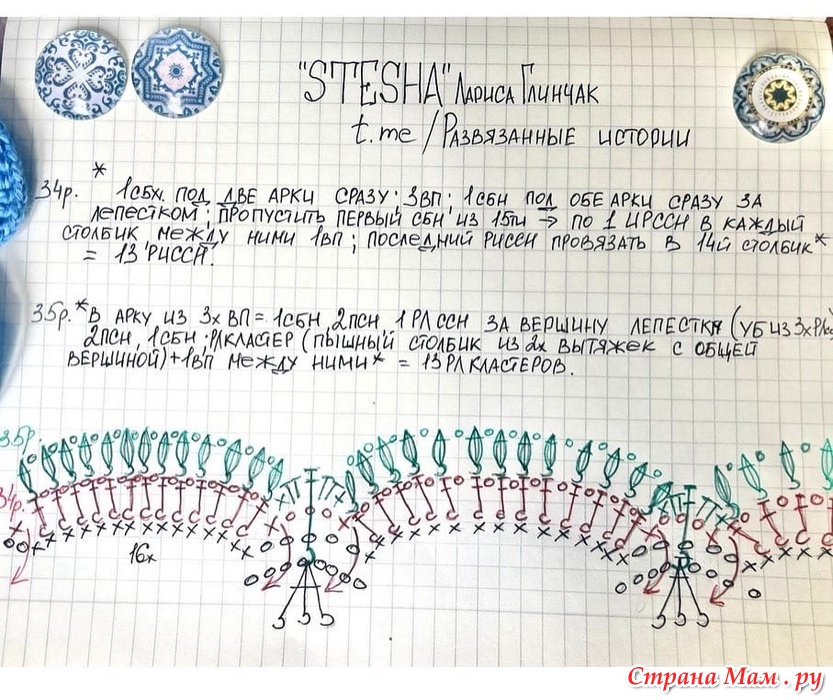 "STESHA" Лариса Глинчак
t.me/Развязанные истории
*
34р. 1сбх. под две арки сразу; 3вп; 1сбн под обе арки сразу за
лепестком; пропустить первый сбн из 15ти → по 1 ИРССН в каждый
столбик, между ними 1вп; последний РИССН провязать в 14й столбик*
= 13 РИССН.
35р. *В арку из 3х вп = 1сбн, 2псн, 1РЛССН за вершину лепестка (уб из 3х
2псн, 1сбн; РЛКЛАСТЕР (пышный столбик из 2х вытяжек с общей
вершиной) + 1вп между ними* = 13 РЛ КЛАСТЕРОВ.
35р.
34р.
16х
Страна Мам.ру